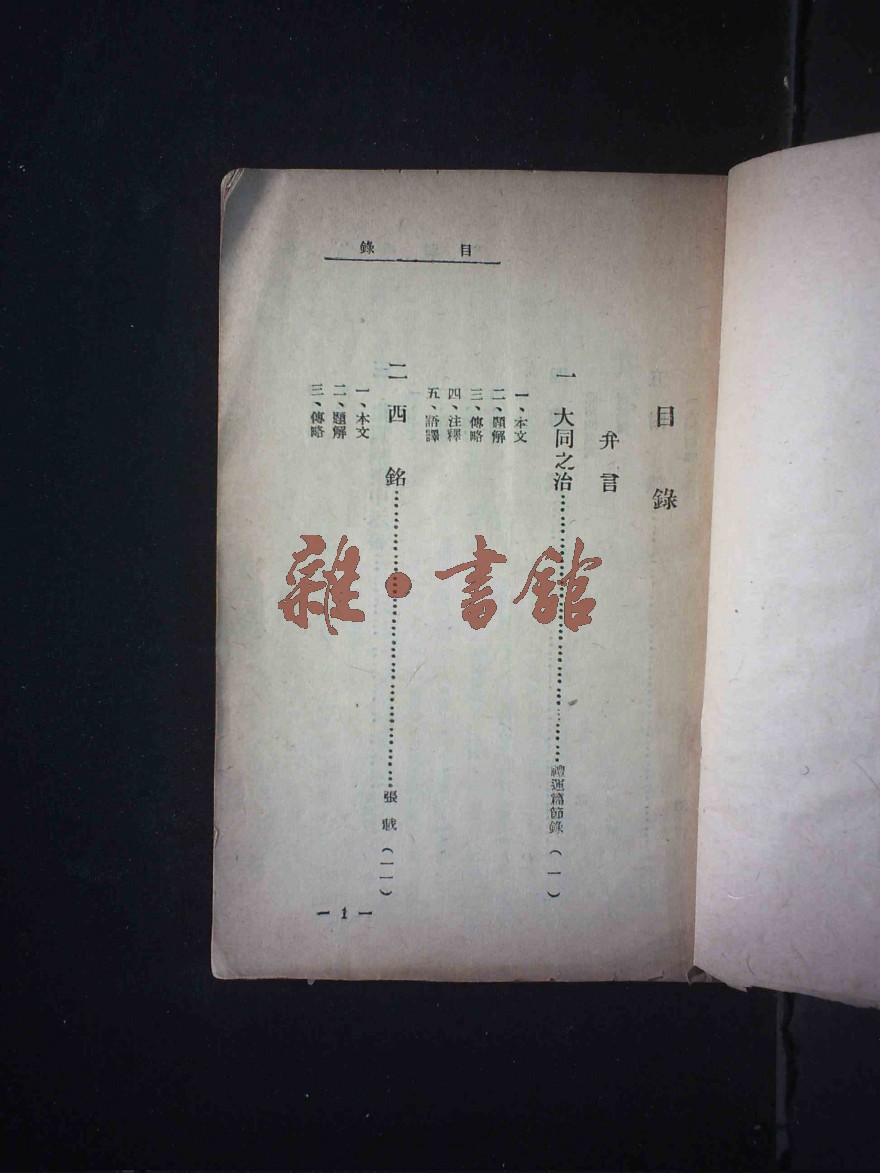 目錄
目錄
弁言
一 大同之治……禮運篇節錄(一)
一、本文
二、題解
三、傳略
四、注釋
五、語譯
二 西銘……張載(一一)
一、本文
二、題解
三、傳略
— 1 —
雜·書館